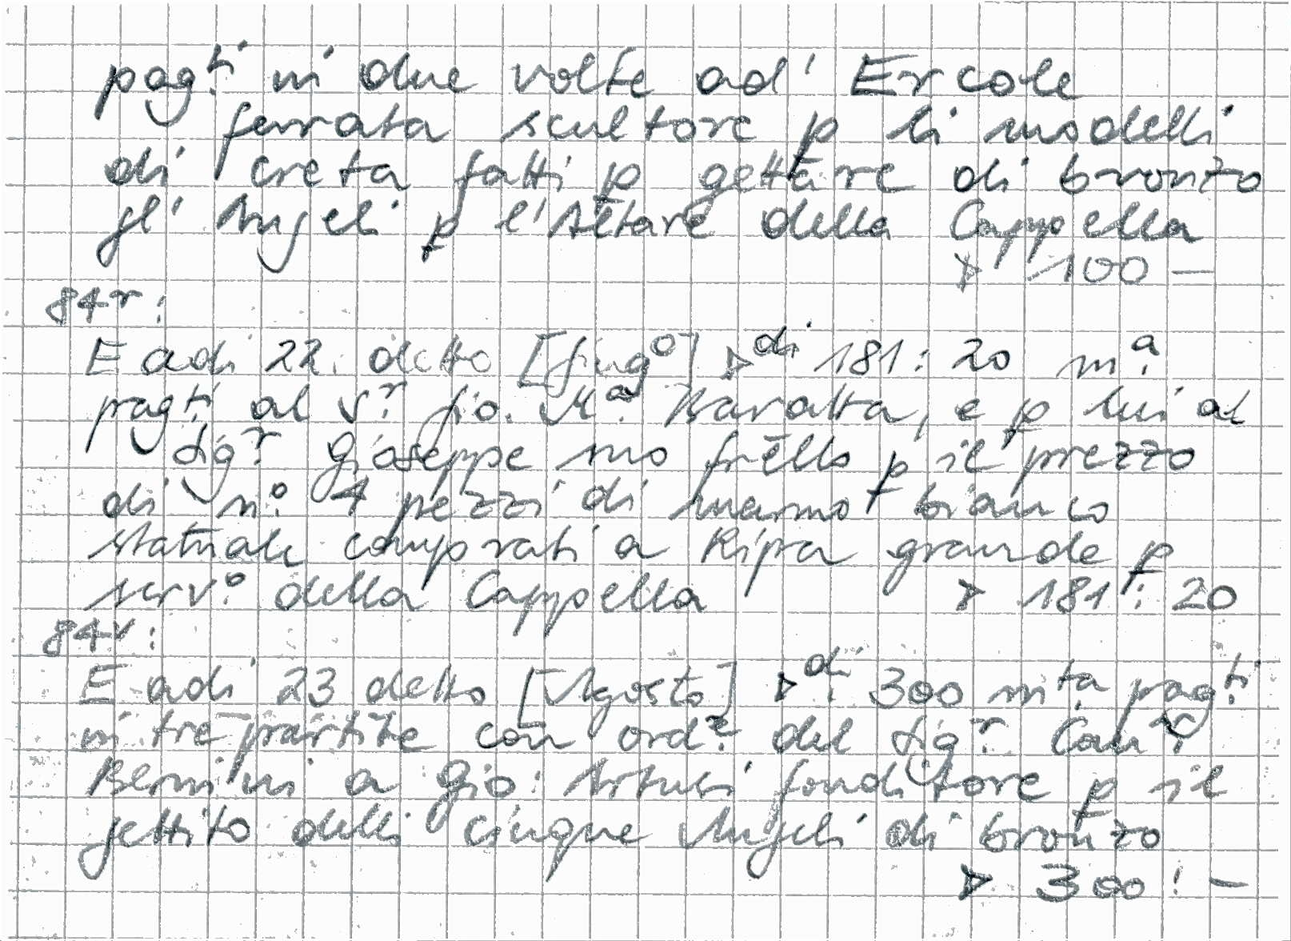 pagti in due volte ad' Ercole
ferrata scultore p li modelli
di creta fatti p gettare di bronzo
gl' Angeli p l'Altare della Cappella
▷ 100 —
84r:
E adi 22. detto [giugo] ▷di 181:20 ma
pagti al Sr. Gio. Ma. Baratta, e p lui al
Sigr. Gioseppe suo frēllo p il prezzo
di no. 4 pezzi di marmo bianco
statuale comprati a Ripa grande p
servo. della Cappella ▷ 181:20
84v:
E adi 23 detto [Agosto] ▷di. 300 mta pagti
in tre partite con orde. del Sigr. Caur.
Bernini a Gio: Artusi fonditore p il
gettito delli cinque Angeli di bronzo
▷ 300:—